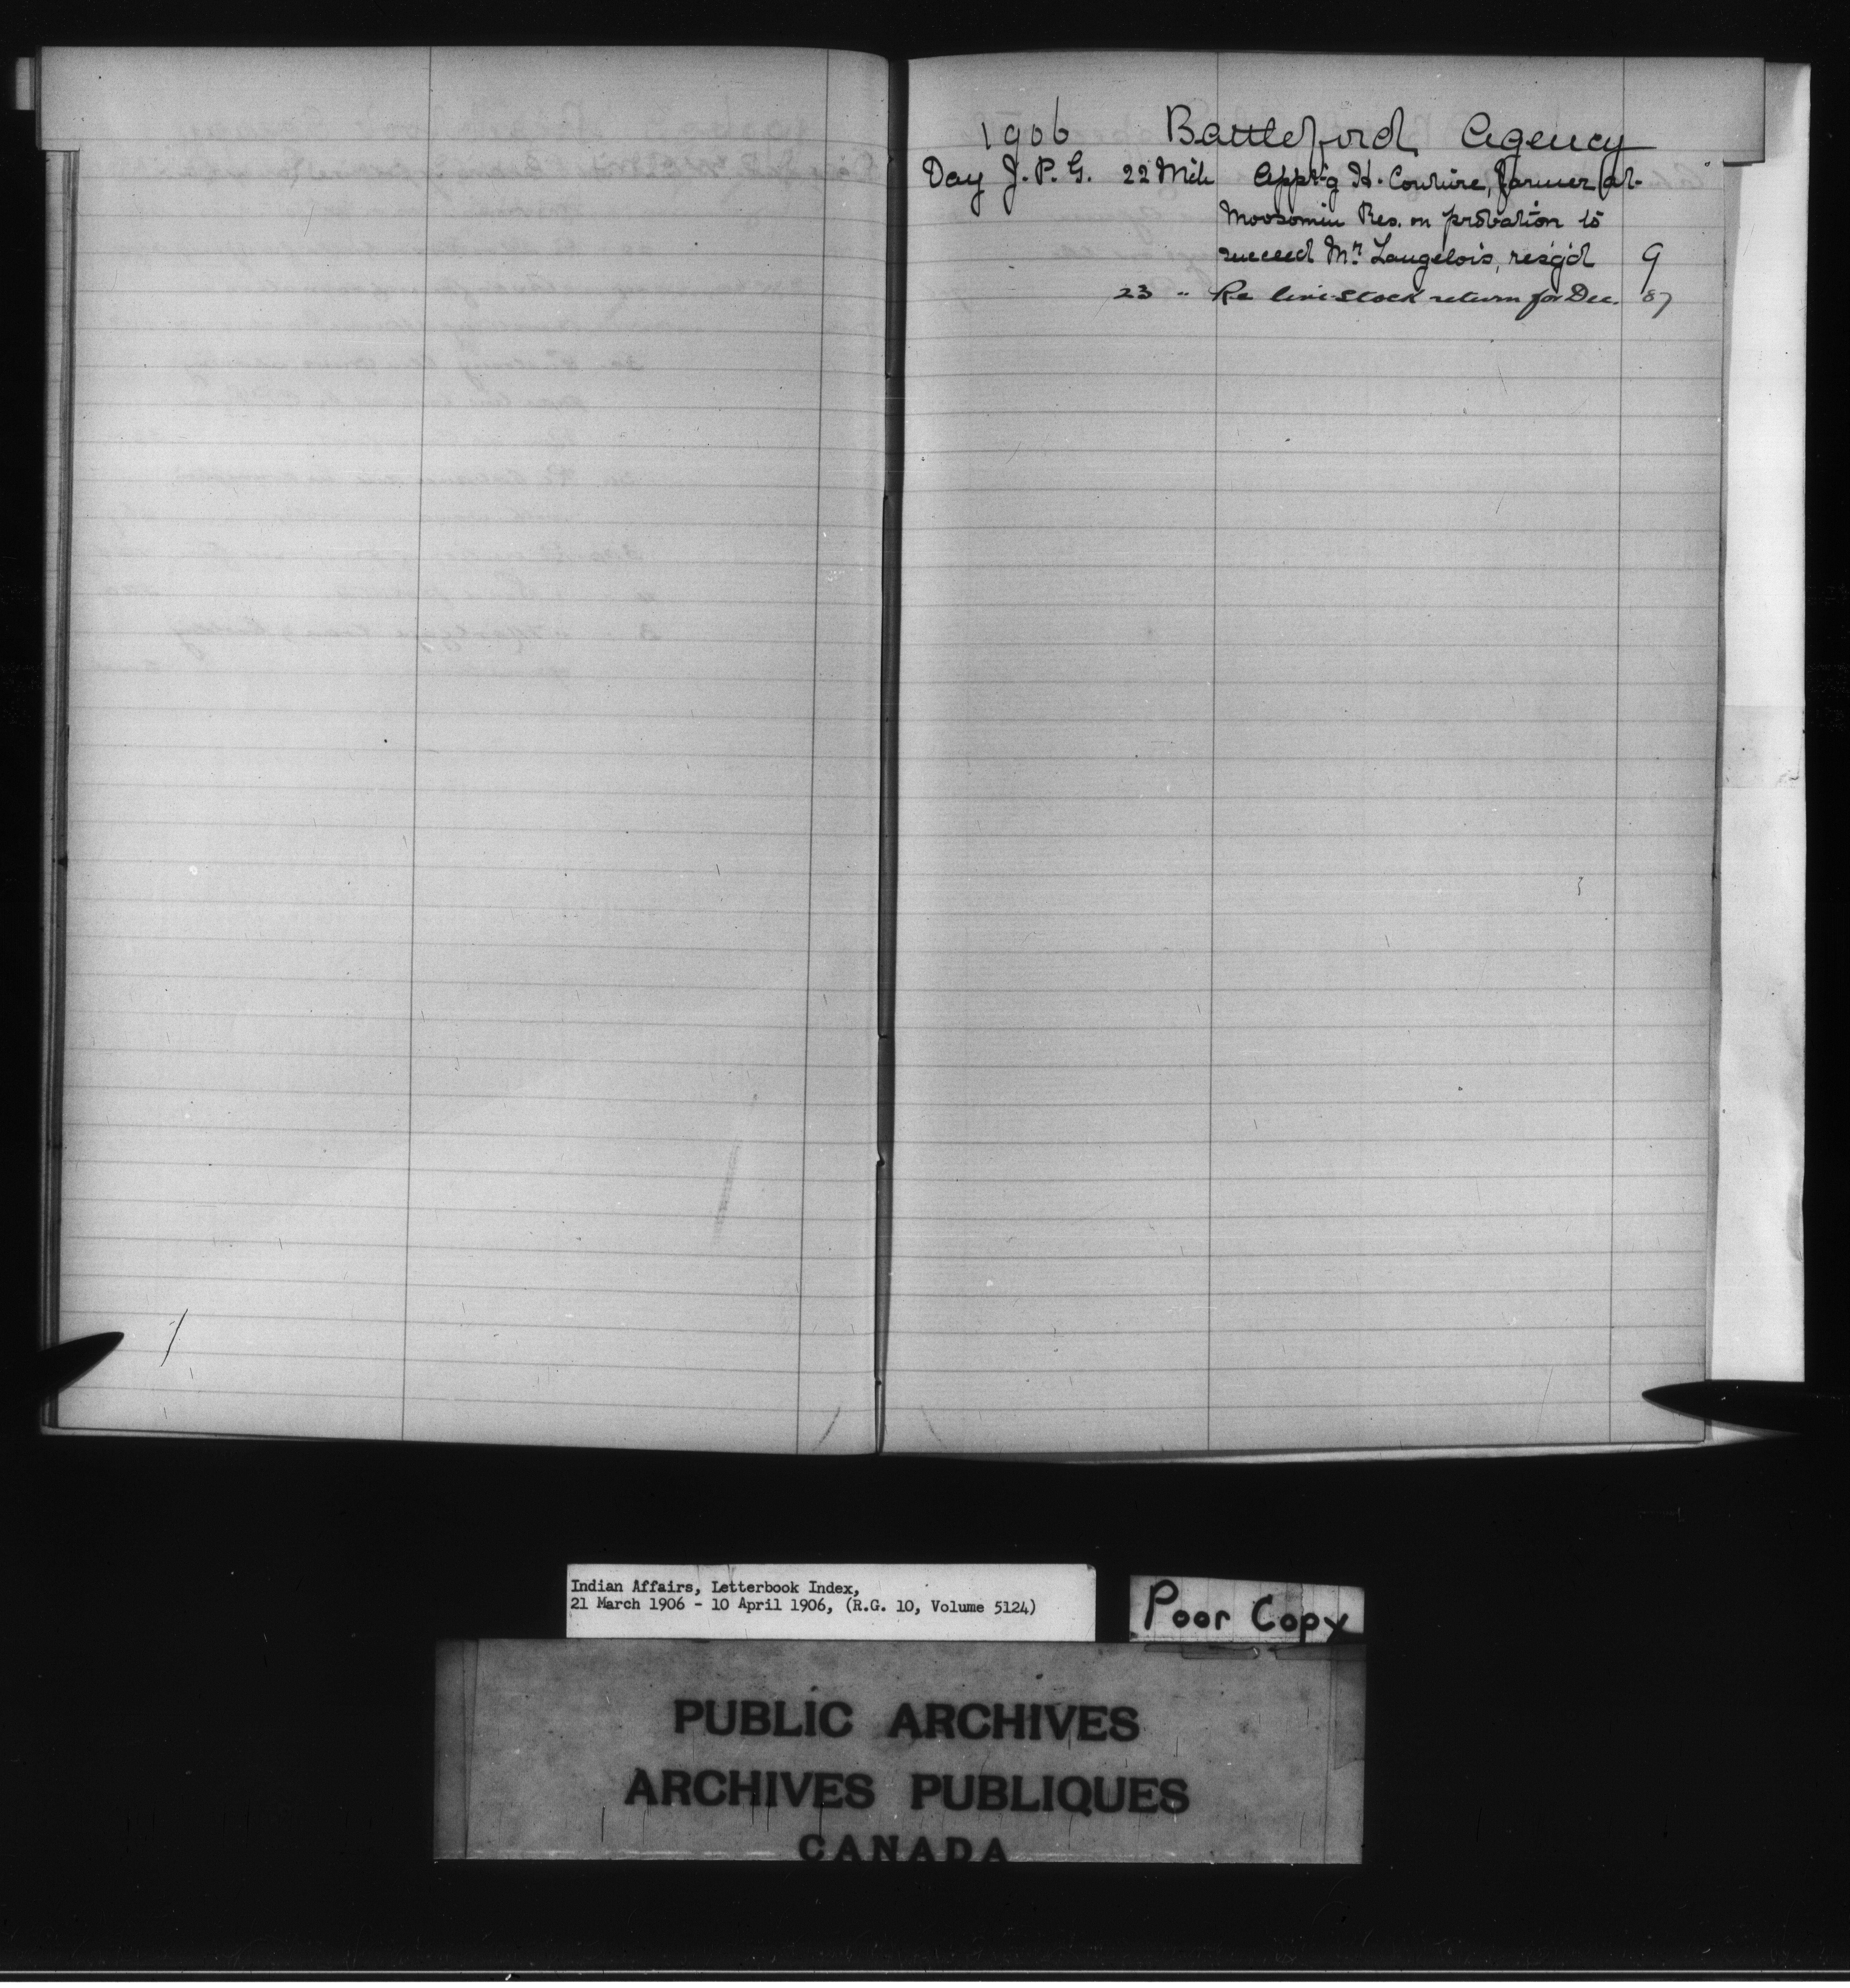 1906 Battleford Agency
Day J. P. G. 22 Mch Appt'g H. Couture, farmer at
Moosomin Res. on probation to
succeed Mr. Langelois, resg'd 9
23 " Re live stock return for Dec. 87
Indian Affairs, Letterbook Index,
21 March 1906 - 10 April 1906, (R.G. 10, Volume 5124)
Poor Copy
PUBLIC ARCHIVES
ARCHIVES PUBLIQUES
CANADA